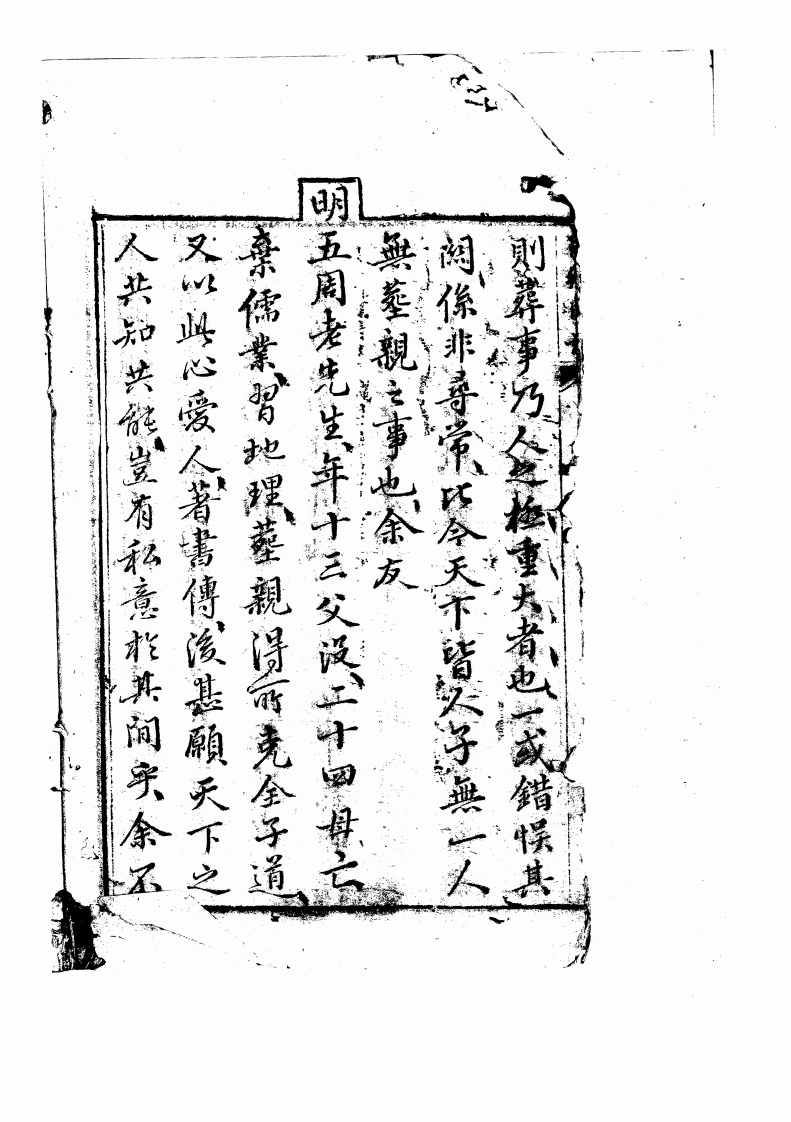 則葬事乃人之極重大者也一或錯悞其
關係非尋常、比今天下皆人子無一人
無塟親之事也、余友
明
五周老先生、年十三父沒、二十四母亡、
棄儒業、習地理、塟親得所克全子道、
又以此心愛人、著書傳後、甚願天下之
人共知共能、豈有私意於其間乎、余不